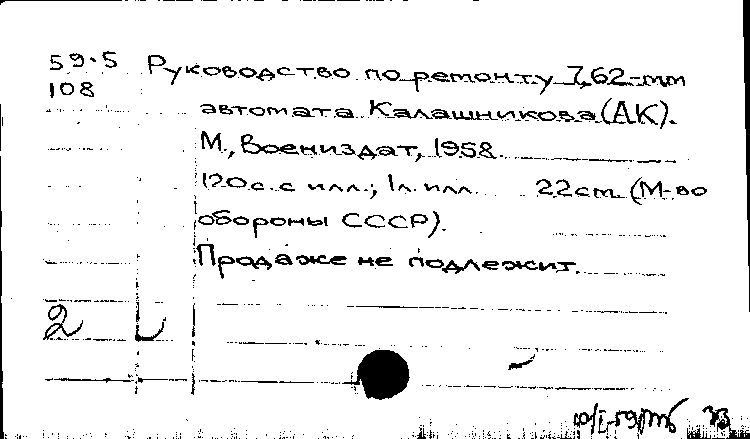 59.5 Руководство по ремонту 7,62-mm
108
автомата Калашникова (АК).
М., Воениздат, 1958.
120с. с илл.; 1л. илл. 22cm. (М-во
обороны СССР).
Продаже не подлежит.
2